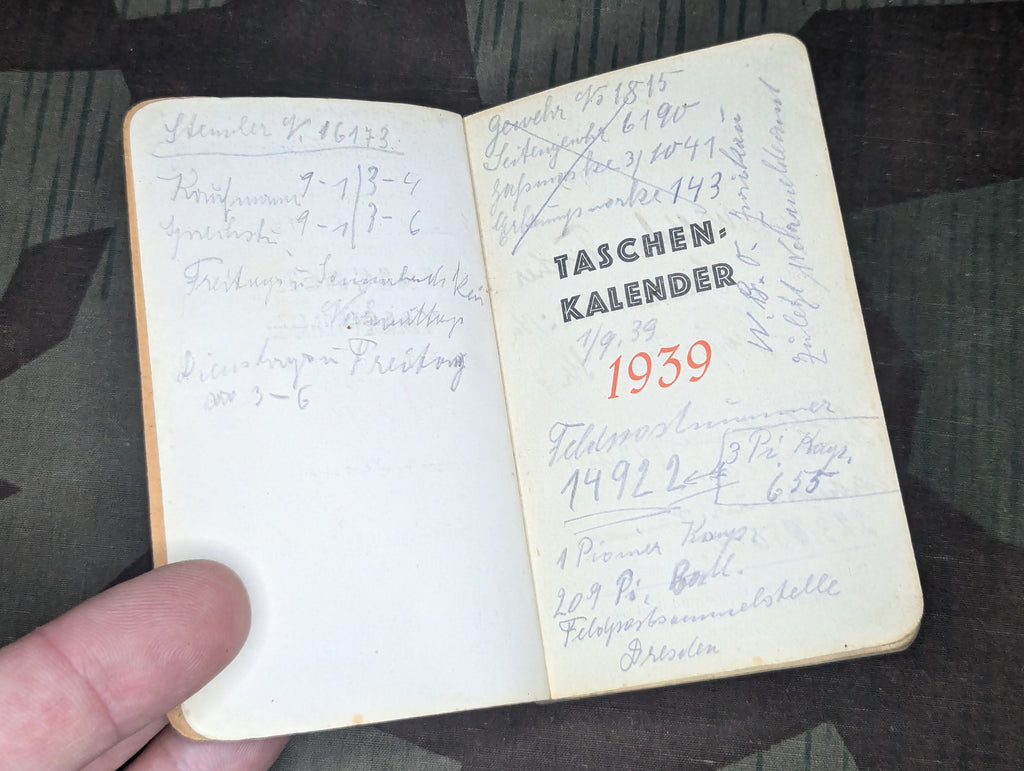 Stemler N. 16173.
Kaufmann 9-1 | 3-4
9-1 | 3-6
Freitags u Sonnabends
Dienstags u Freitag
3-6
Gewehr No 1815
Seitengewehr 6190
Gasmaske 3/1041
143
TASCHEN-
KALENDER
1/9.39
1939
Feldpostnummer
14922
3 Pi Kayp.
655
1 Pionier Komp.
209 Pi. Batl.
Feldpostsammelstelle
Dresden
W.B.O. Zwickau
Zuletzt